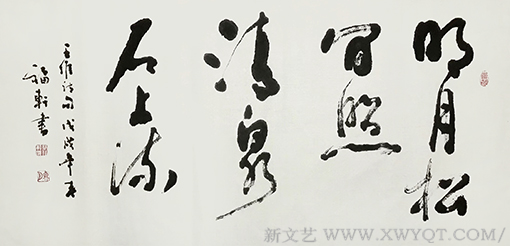 明月松
间照
清泉
石上流
王维诗句戊戌年春
福轩书
新文艺 WWW.XWYQT.COM/